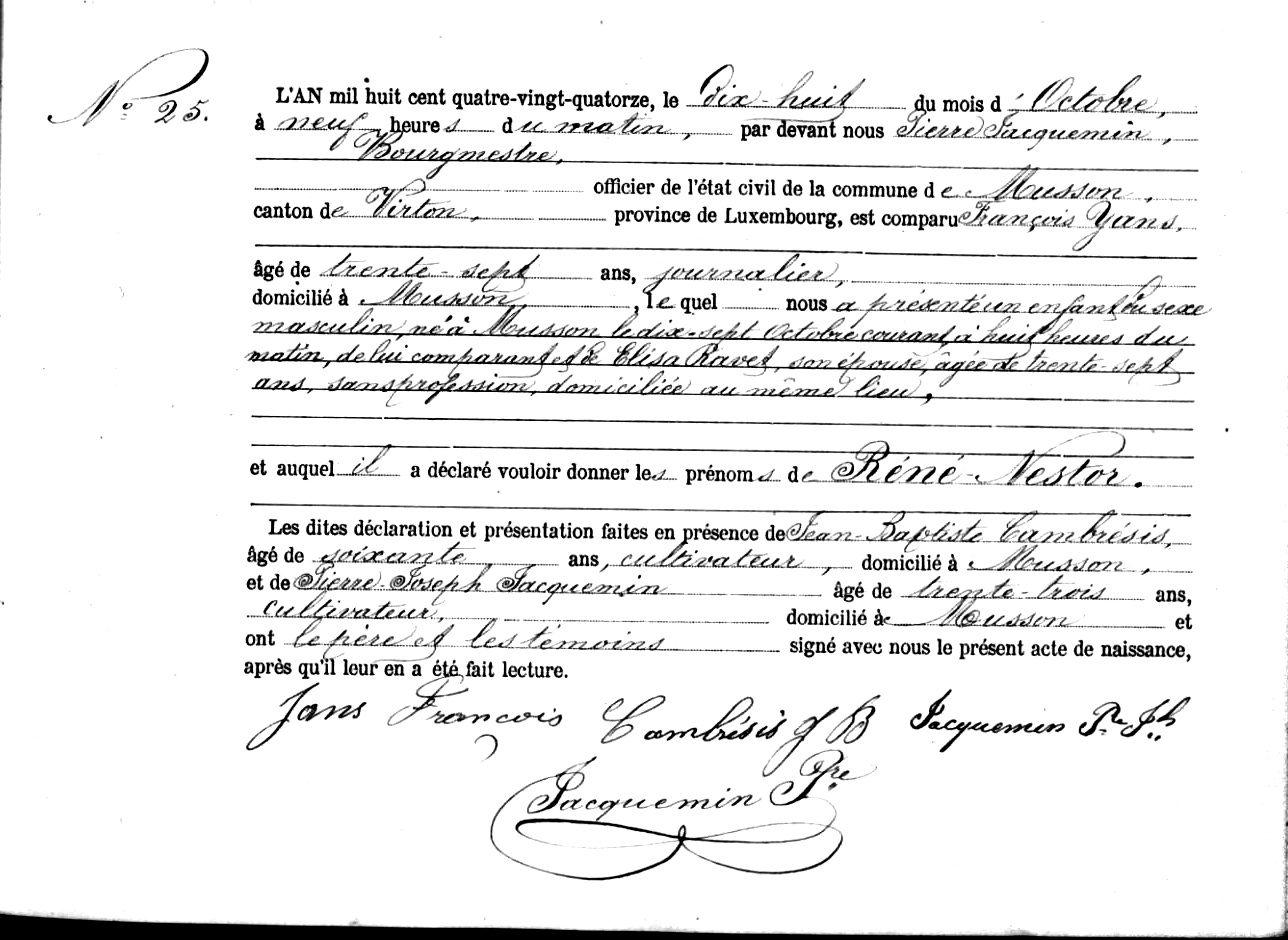 N° 25.
L'AN mil huit cent quatre-vingt-quatorze, le dix-huit du mois d'Octobre,
à neuf heures du matin, par devant nous Pierre Jacquemin,
Bourgmestre,
officier de l'état civil de la commune de Musson,
canton de Virton, province de Luxembourg, est comparu François Yans,
âgé de trente-sept ans, journalier,
domicilié à Musson, lequel nous a présenté un enfant du sexe
masculin, né à Musson le dix-sept Octobre courant, à huit heures du
matin, de lui comparant et de Elisa Ravet, son épouse, âgée de trente-sept
ans, sans profession, domiciliée au même lieu,
et auquel il a déclaré vouloir donner les prénoms de Réné-Nestor.
Les dites déclaration et présentation faites en présence de Jean-Baptiste Cambrésis,
âgé de soixante ans, cultivateur, domicilié à Musson,
et de Pierre-Joseph Jacquemin âgé de trente-trois ans,
cultivateur, domicilié à Musson et
ont le père et les témoins signé avec nous le présent acte de naissance,
après qu'il leur en a été fait lecture.
Jans François Cambrésis J B Jacquemin Pre Jh
Jacquemin Pre